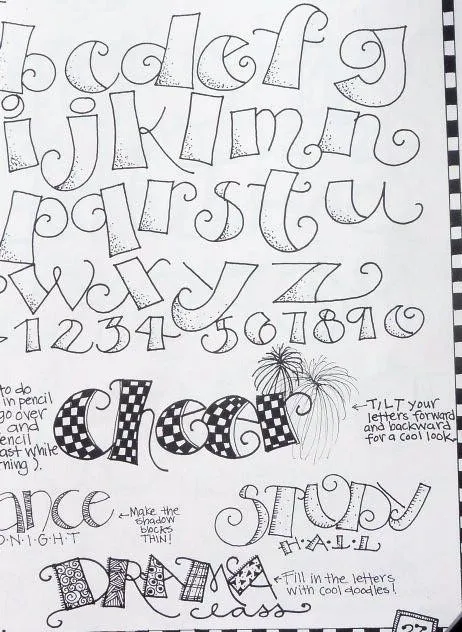 b c d e f g
i j k l m n
p q r s t u
w x y z
1 2 3 4 5 6 7 8 9 0
to do
in pencil
go over
and
encil
ast while
rning ).
cheer
TILT your
letters forward
and backward
for a cool look.
ance
O·N·I·G·H·T
Make the
shadow
blocks
THIN!
STUDY
H·A·L·L
DRAMA
class
Fill in the letters
with cool doodles!